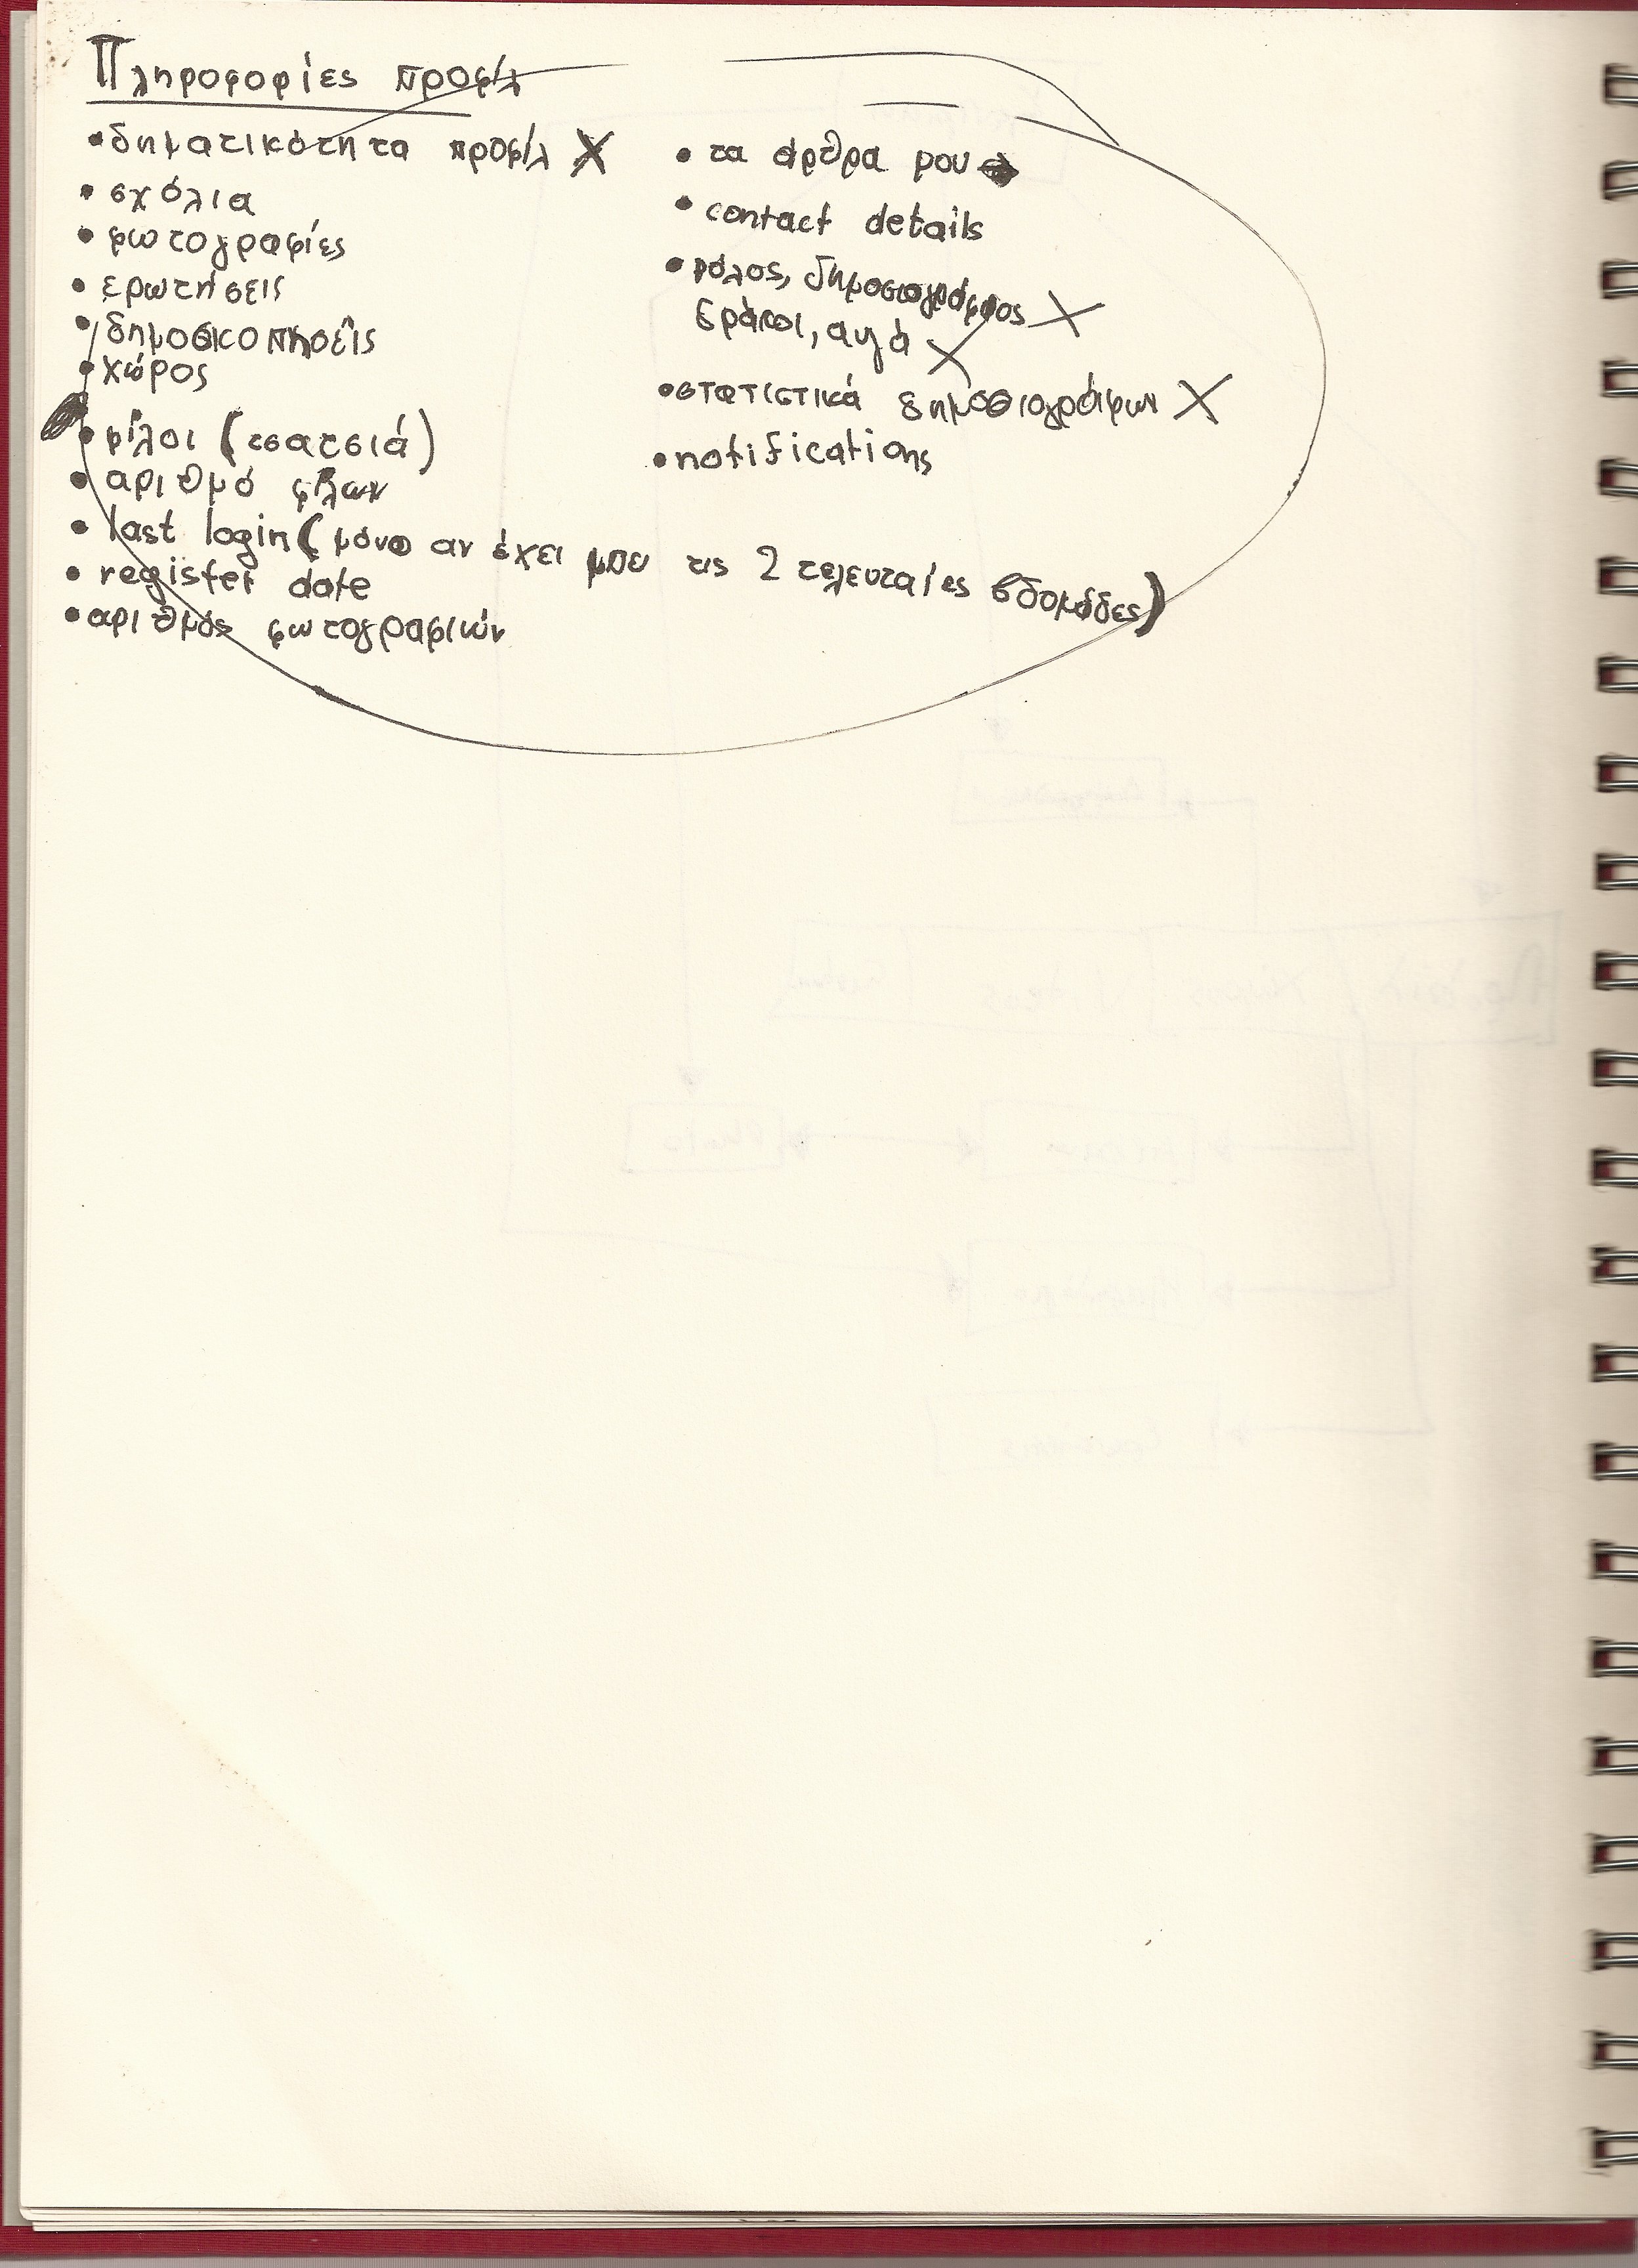 Πληροφορίες προφίλ
• δηματικότητα προφίλ X
• σχόλια
• φωτογραφίες
• ερωτήσεις
• δημοσκοπήσεις
• χώρος
• φίλοι (τσατσιά)
• αριθμό φίλων
• last login (μόνο αν έχει μπει τις 2 τελευταίες βδομάδες)
• register date
• αριθμός φωτογραφιών
• τα άρθρα μου
• contact details
• ρόλος, δημοσιογράφος X
δράκοι, αυγά X
• στατιστικά δημοσιογράφων X
• notifications